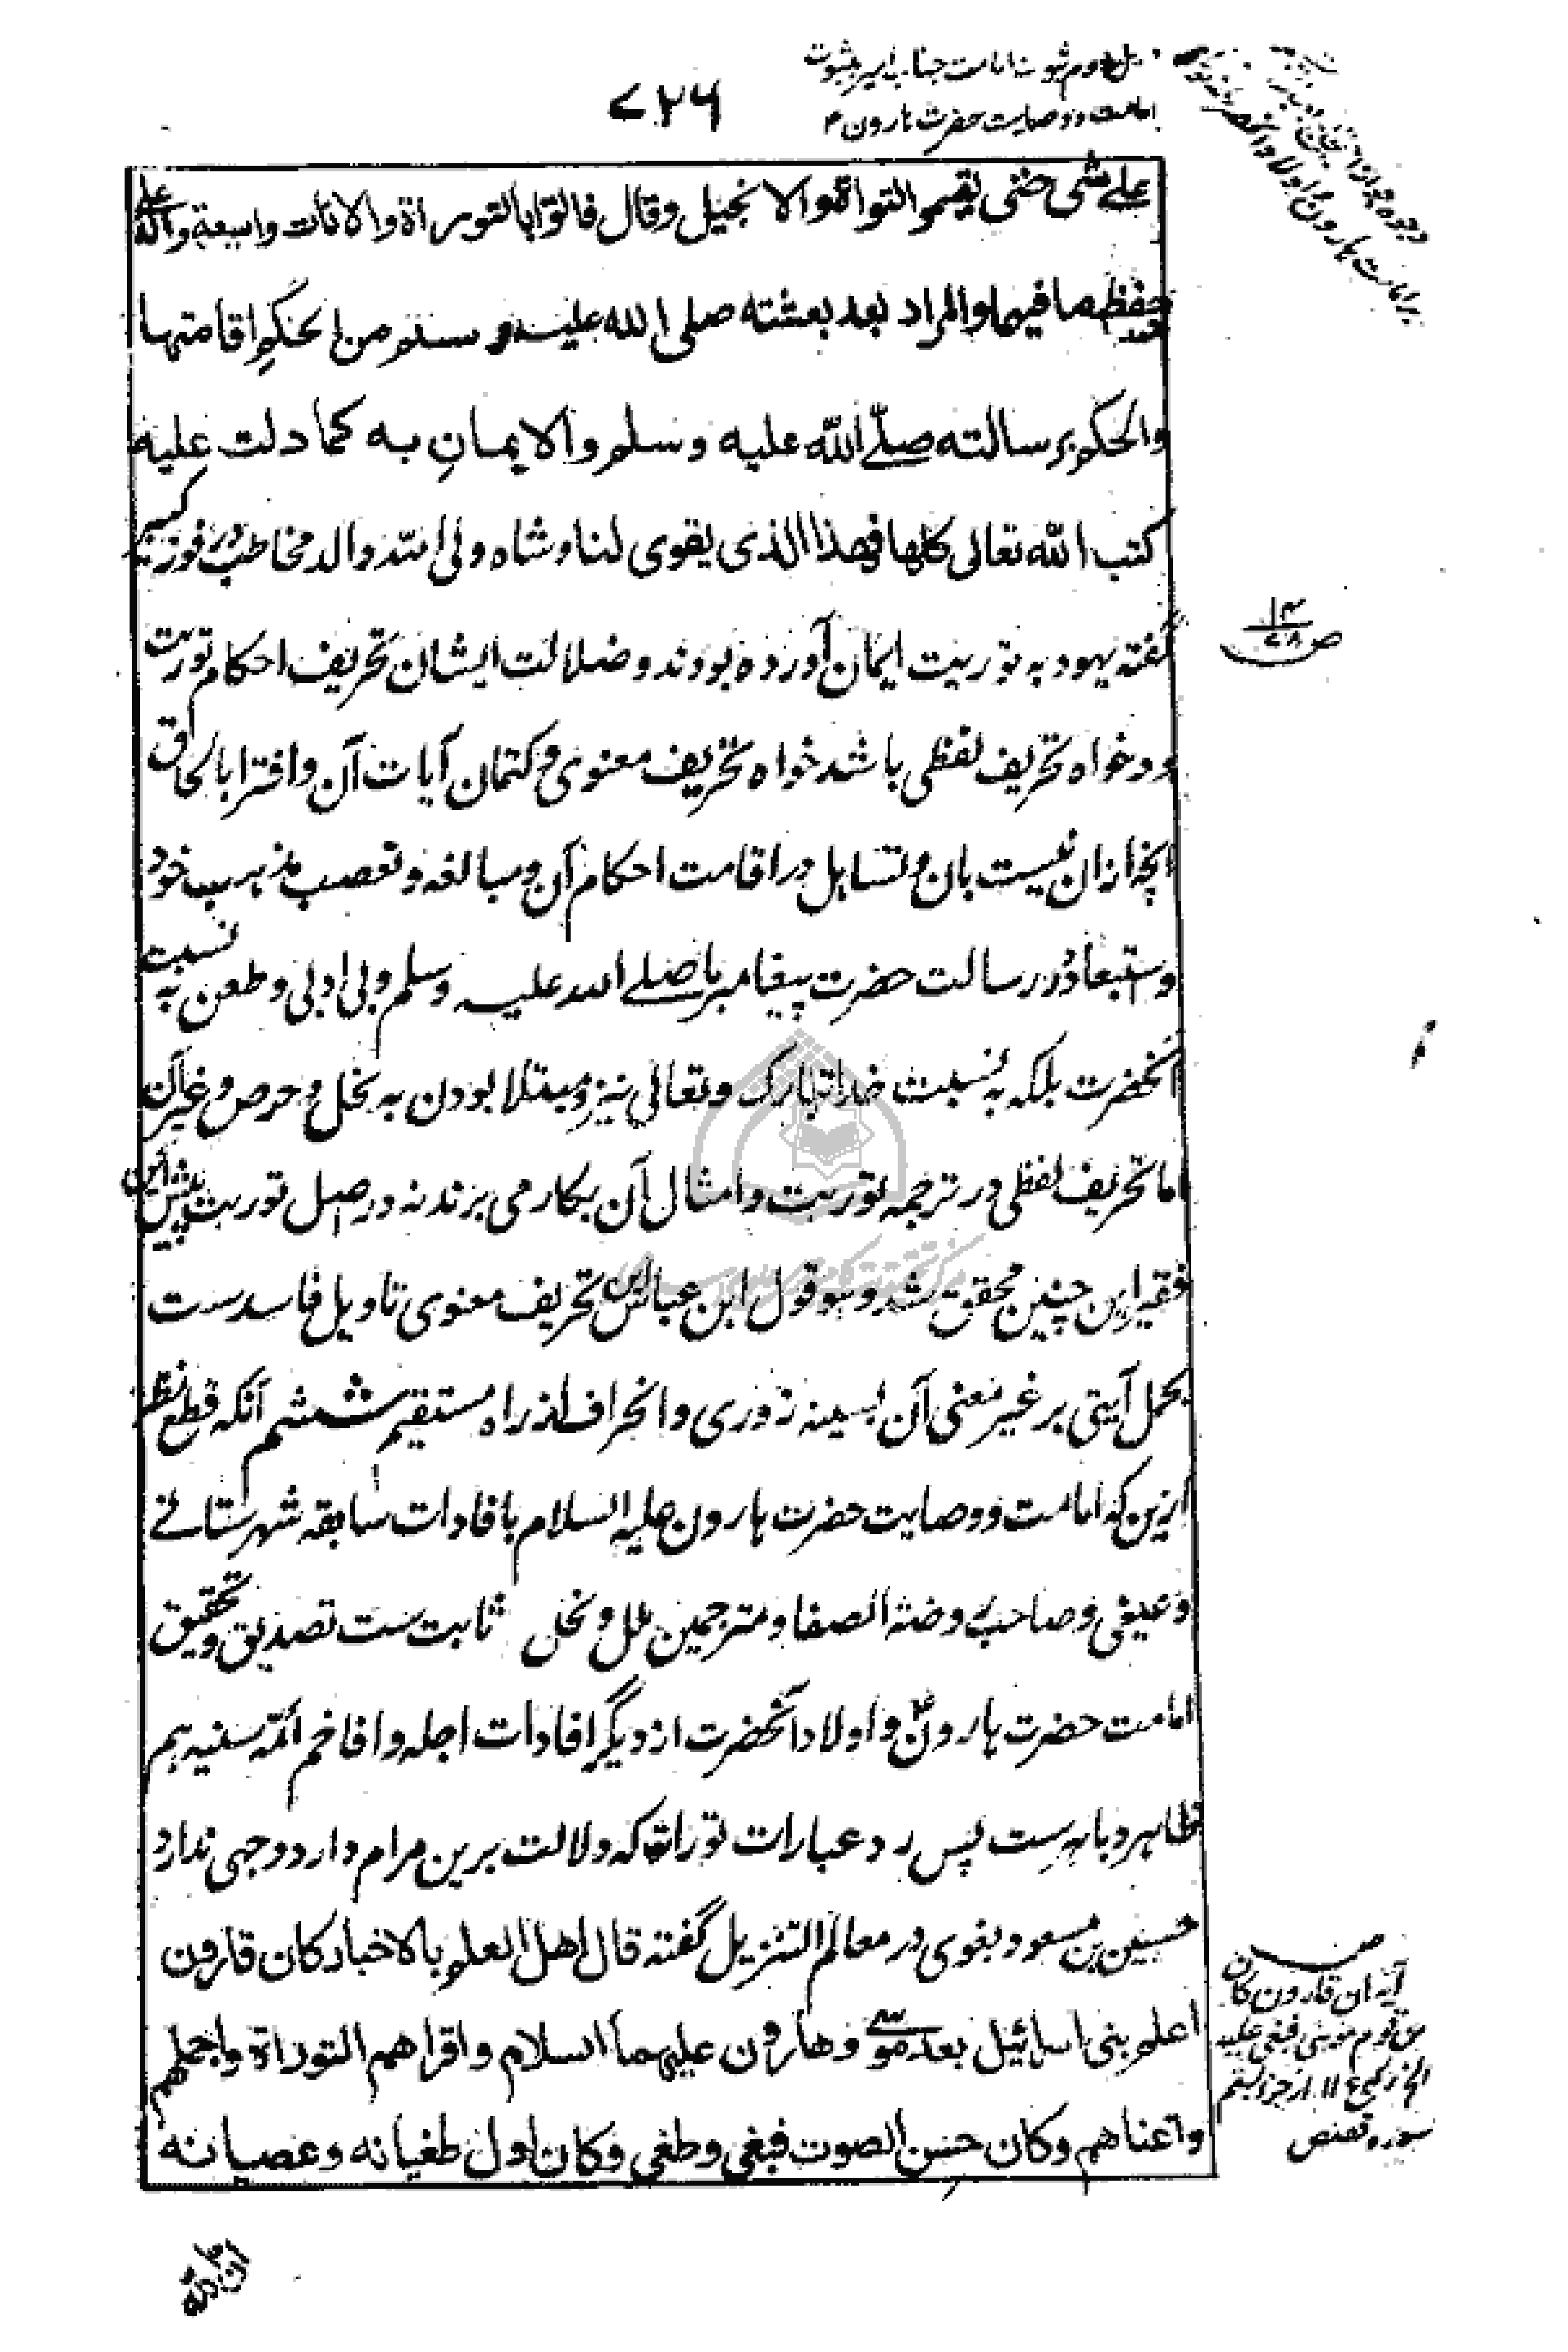 دلیل دوم ثبوت امامت جناب امیر بثبوت
امامت و وصایت حضرت هارون ۴
۷۲۶
علی شی حتی تقیموا التوراة والانجیل وقال فاتوا بالتوراة والآیات واسعة
حفظ ما فیها والمراد بعد بعثته صلی الله علیه وسلم من الحکم اقامتها
والحکم برسالته صلّی الله علیه وسلم والایمان به کما دلت علیه
کتب الله تعالی کلها فهذا الذی یقوی لنا وشاه ولی الله والد مخاطب در فوز کبیر
گفته یهود به توریت ایمان آورده بودند و ضلالت ایشان تحریف احکام توریت
بود خواه تحریف لفظی باشد خواه تحریف معنوی و کتمان آیات آن و افترا بالحاق
آنچه ازان نیست بان و تساهل در اقامت احکام آن و مبالغه و تعصب مذهب خود
و استبعاد در رسالت حضرت پیغامبر ما صلی الله علیه وسلم و بی ادبی و طعن به نسبت
آنحضرت بلکه به نسبت خدا تبارک و تعالی نیز و مبتلا بودن به بخل و حرص و غیر آن
اما تحریف لفظی در ترجمه توریت و امثال آن بکار می بردند نه در اصل توریت پیش این
فقیر این چنین محقق شد و هو قول ابن عباس این تحریف معنوی تاویل فاسدست
بحمل آیتی بر غیر معنی آن بسینه زوری و انحراف از راه مستقیم ششم آنکه قطع نظر
ازین که امامت و وصایت حضرت هارون علیه السلام بافادات سابقه شهرستانی
و عیفی و صاحب روضة الصفا و مترجمین ملل و نحل ثابت ست تصدیق و تحقیق
امامت حضرت هارونؑ و اولاد آنحضرت از دیگر افادات اجله و افاخم ائمه سنیه هم
ظاهر و باهرست پس رد عبارات توراة که دلالت برین مرام دارد وجهی ندارد
حسین بن مسعود بغوی در معالم التنزیل گفته قال اهل العلم بالاخبار کان قارون
اعلم بنی اسرائیل بعد موسی وهارون علیهما السلام واقراهم التوراة واجملهم
واغناهم وکان حسن الصوت فبغی وطغی وکان اول طغیانه وعصیانه
وجوه جواز
بر امامت هارونؑ و اولاد آنحضرت
۱۳
ص ۲۸
آیه ان قارون کان
من قوم موسی فبغی علیهم
الخ رکوع ۱۱ از جزو بستم
سوره قصص
ان الله